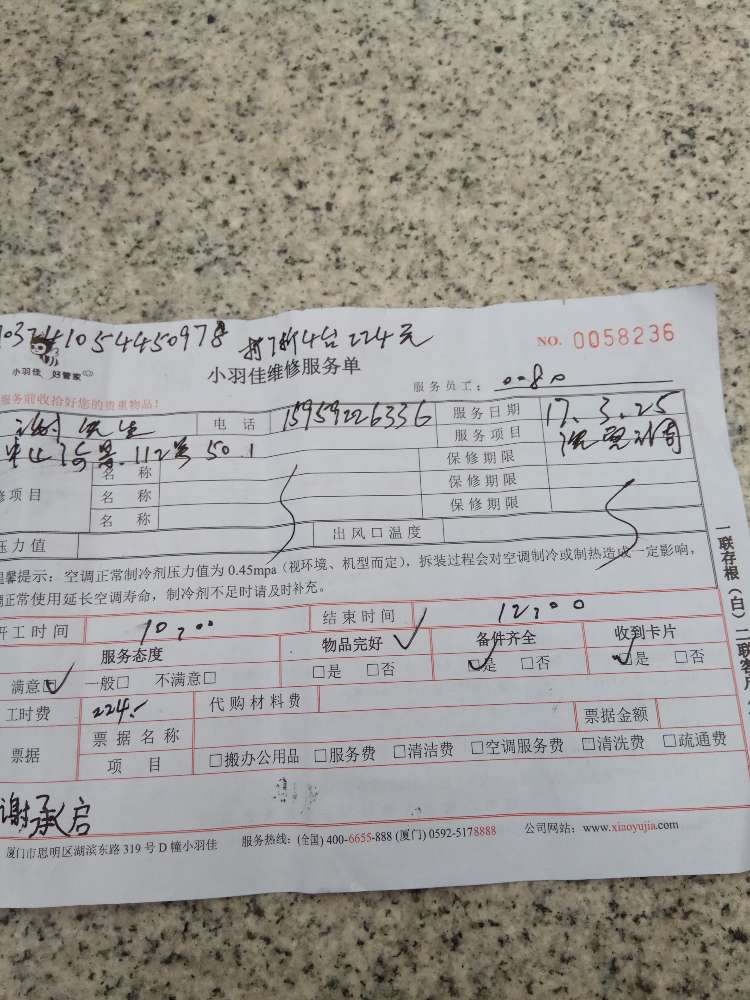 03741054450978 打7折4台224元
小羽佳 好管家
小羽佳维修服务单
NO. 0058236
服务员工： 0080
服务前收拾好您的贵重物品！
谢先生 电话 15959226336 服务日期 17.3.25
112号501 服务项目
名称 保修期限
修项目 名称 保修期限
名称 保修期限
压力值 出风口温度
温馨提示：空调正常制冷剂压力值为 0.45mpa（视环境、机型而定），拆装过程会对空调制冷或制热造成一定影响，
调正常使用延长空调寿命，制冷剂不足时请及时补充。
开工时间 10:00 结束时间 12:00
服务态度 物品完好 备件齐全 收到卡片
满意□ 一般□ 不满意□ □是 □否 □是 □否 □是 □否
工时费 224. 代购材料费
票据 票据名称 票据金额
项目 □搬办公用品 □服务费 □清洁费 □空调服务费 □清洗费 □疏通费
谢承启
厦门市思明区湖滨东路 319 号 D 幢小羽佳 服务热线：(全国) 400-6655-888 (厦门) 0592-5178888 公司网站：www.xiaoyujia.com
一联存根（白）二联客户